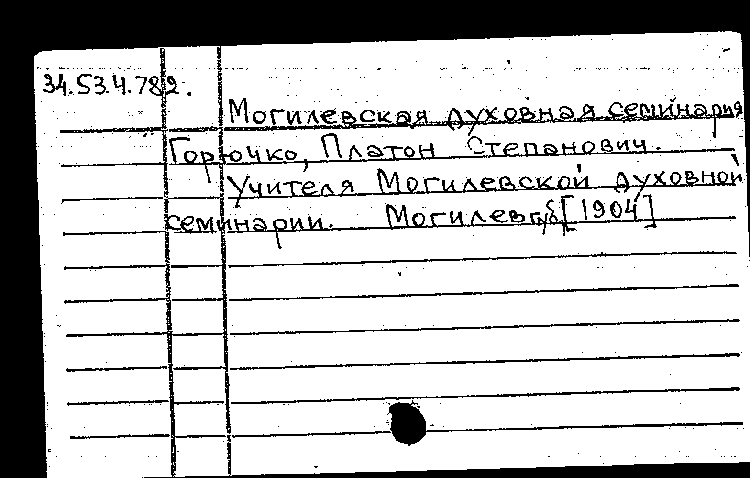 34.53.4.782.
Могилевская духовная семинария
Горючко, Платон Степанович.
Учителя Могилевской духовной
семинарии. Могилев губ [1904]